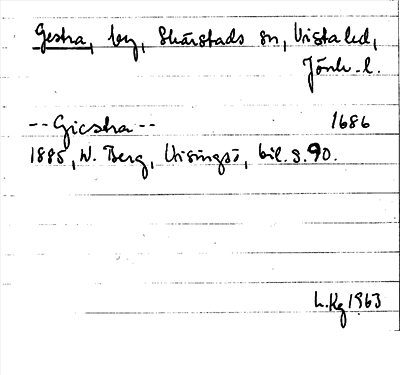 Gestra, by, Skärstads sn, Vista hd,
Jönk. l.
--Giestra-- 1686
1885, W. Berg, Visingsö, bil. s. 90.
L.Kg 1963